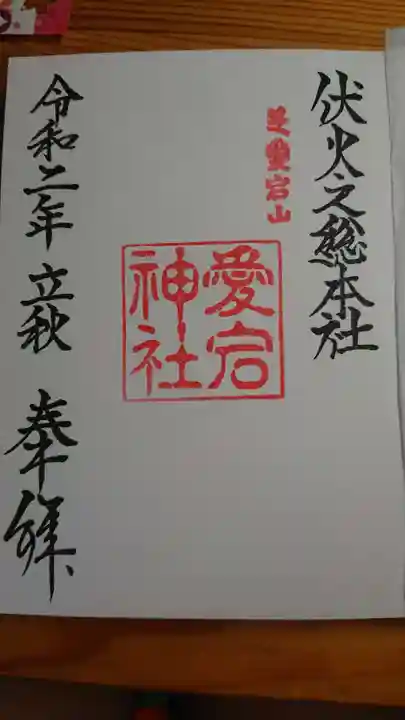 伏火之總本社
芝愛宕山
愛宕
神社
令和二年 立秋 奉拝